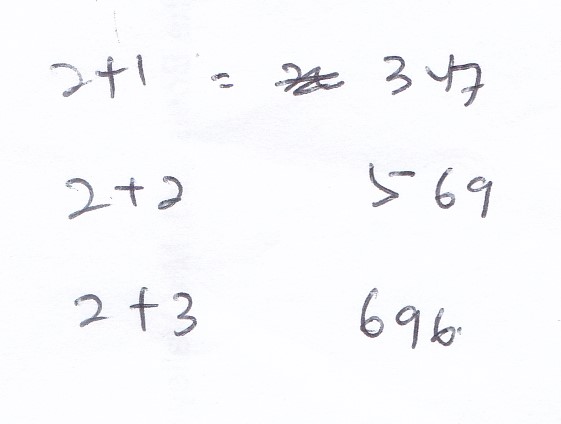 2+1 = 347
2+2 569
2+3 696.